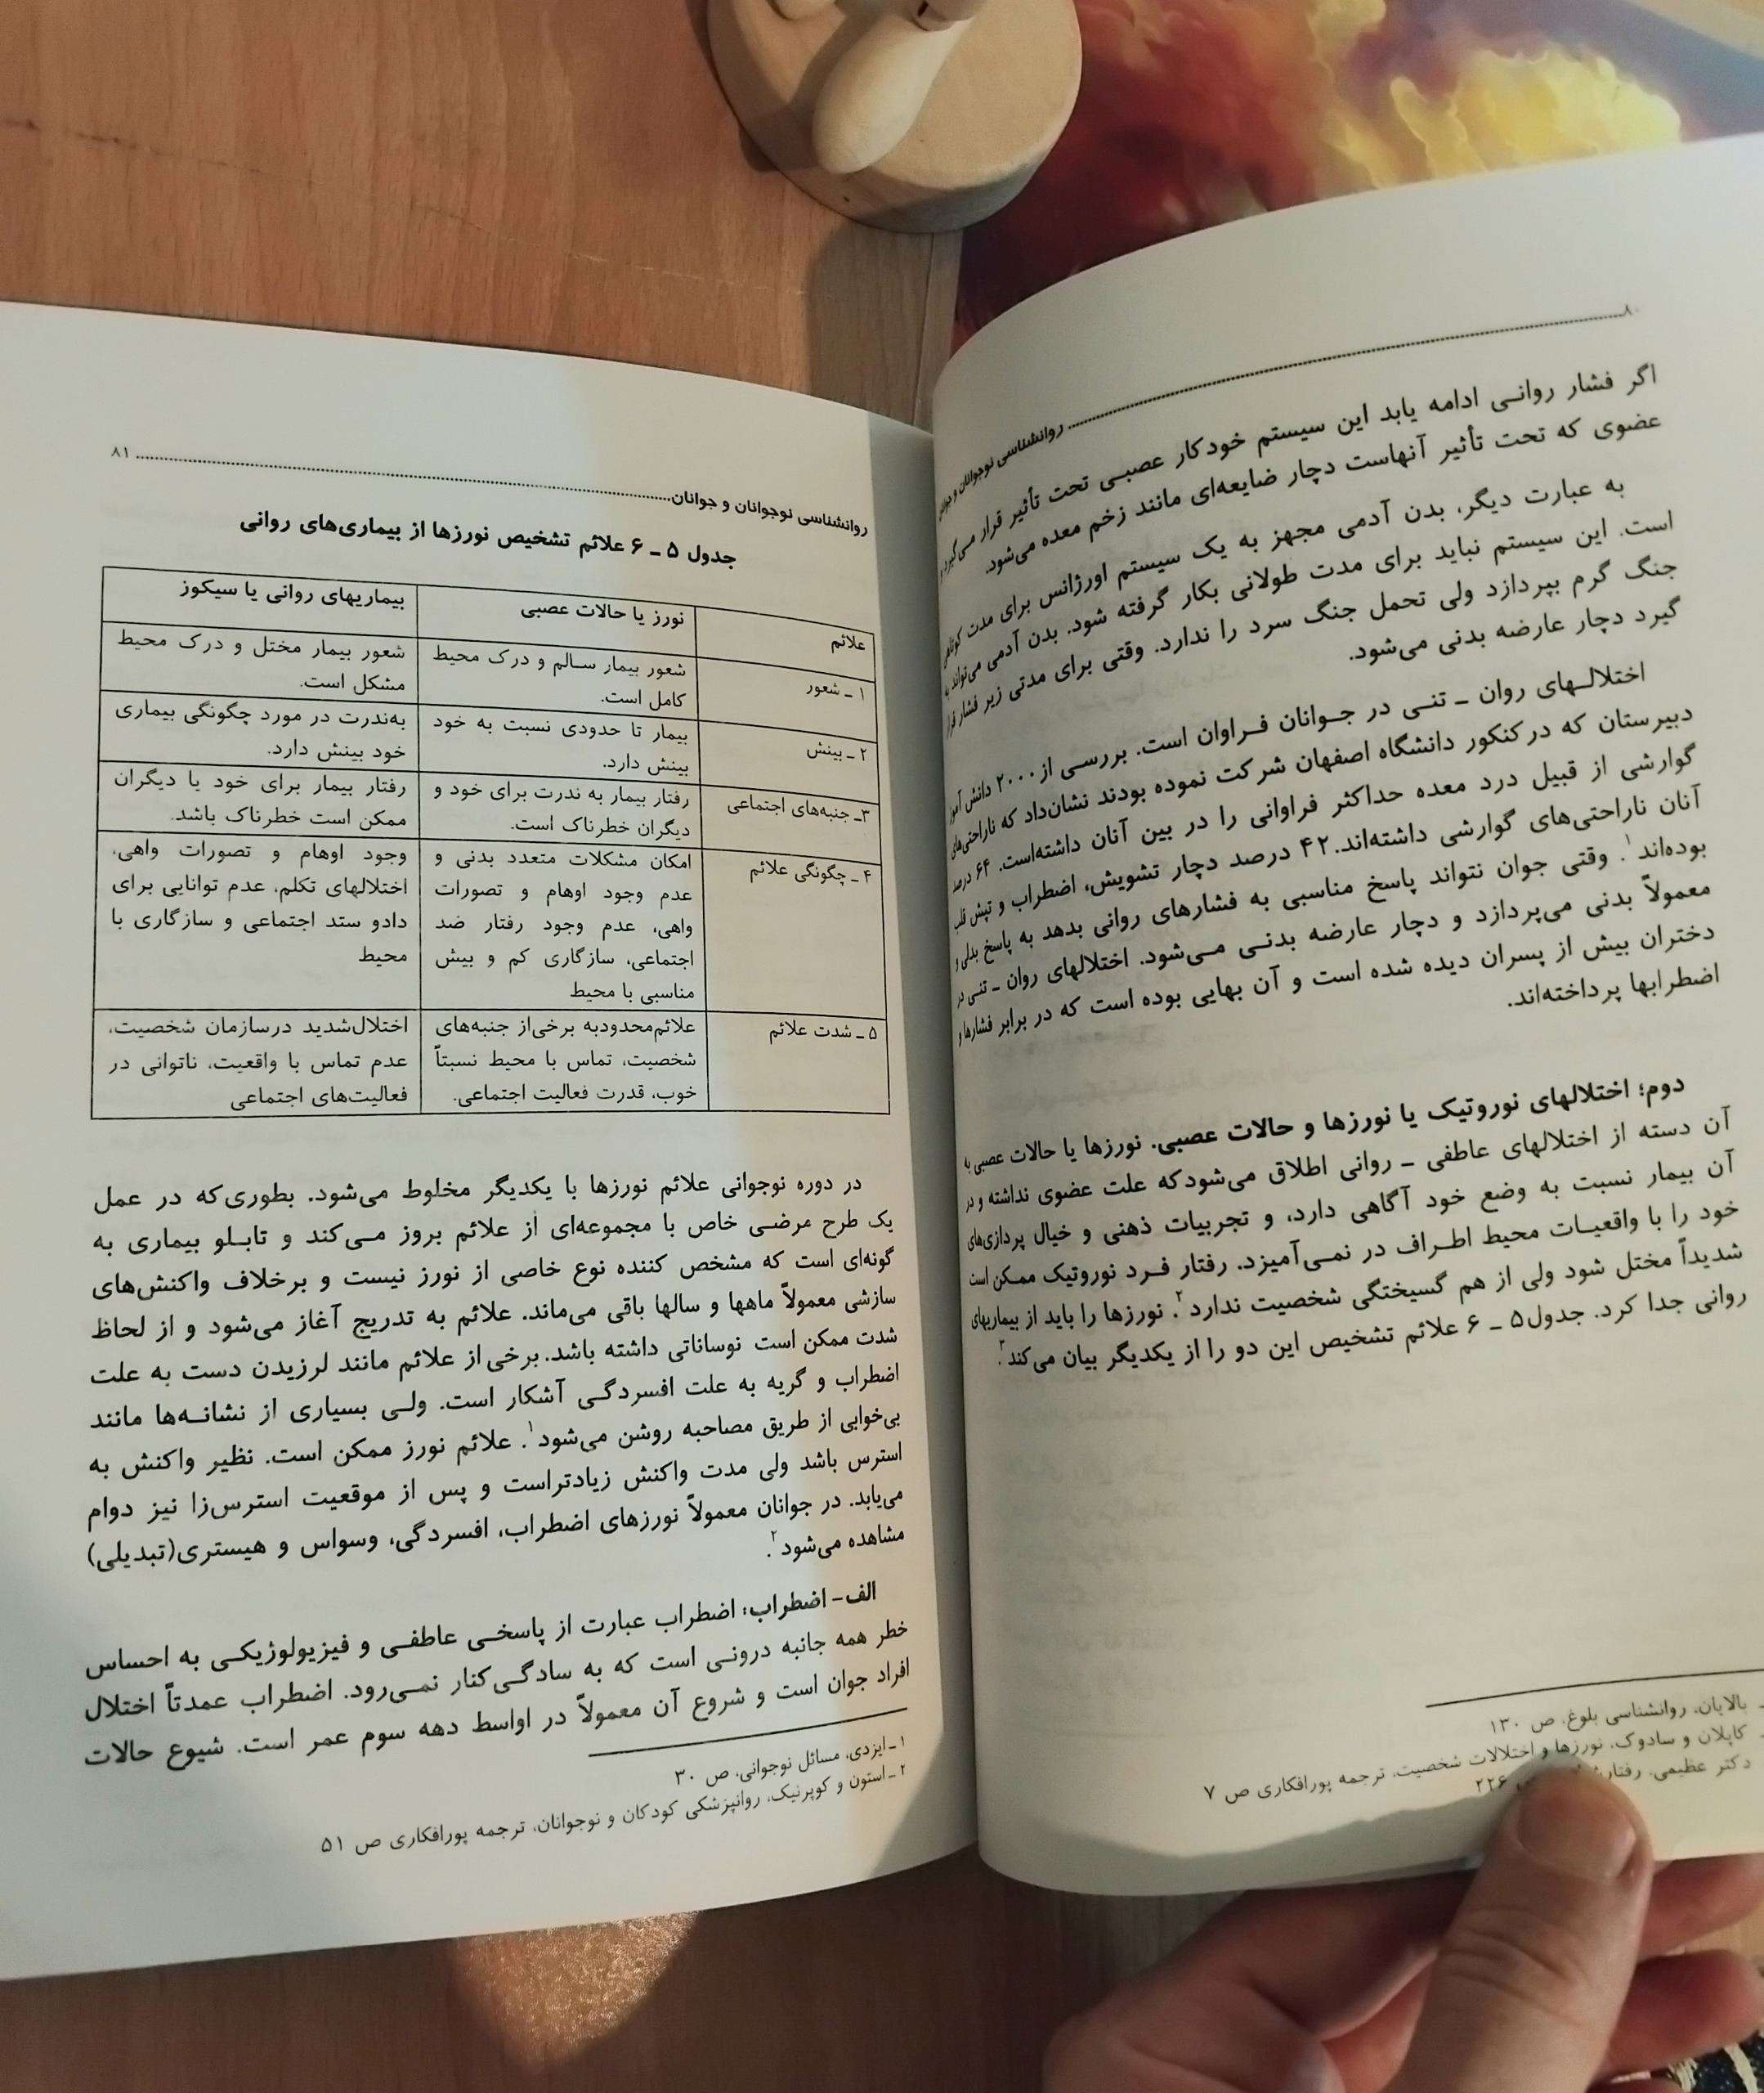 ۸۰ روانشناسی نوجوانان و جوانان
اگر فشار روانی ادامه یابد این سیستم خودکار عصبی تحت تأثیر قرار می‌گیرد و
عضوی که تحت تأثیر آنهاست دچار ضایعه‌ای مانند زخم معده می‌شود.
به عبارت دیگر، بدن آدمی مجهز به یک سیستم اورژانس برای مدت کوتاهی
است. این سیستم نباید برای مدت طولانی بکار گرفته شود. بدن آدمی می‌تواند به
جنگ گرم بپردازد ولی تحمل جنگ سرد را ندارد. وقتی برای مدتی زیر فشار قرار
گیرد دچار عارضه بدنی می‌شود.
اختلالهای روان ـ تنی در جوانان فراوان است. بررسی از ۲۰۰۰ دانش آموز
دبیرستان که در کنکور دانشگاه اصفهان شرکت نموده بودند نشان‌داد که ناراحتی‌های
گوارشی از قبیل درد معده حداکثر فراوانی را در بین آنان داشته‌است. ۶۴ درصد
آنان ناراحتی‌های گوارشی داشته‌اند. ۴۲ درصد دچار تشویش، اضطراب و تپش قلب
بوده‌اند۱. وقتی جوان نتواند پاسخ مناسبی به فشارهای روانی بدهد به پاسخ بدلی و
معمولاً بدنی می‌پردازد و دچار عارضه بدنی می‌شود. اختلالهای روان ـ تنی در
دختران بیش از پسران دیده شده است و آن بهایی بوده است که در برابر فشارها و
اضطرابها پرداخته‌اند.
دوم؛ اختلالهای نوروتیک یا نورزها و حالات عصبی. نورزها یا حالات عصبی به
آن دسته از اختلالهای عاطفی ـ روانی اطلاق می‌شودکه علت عضوی نداشته و در
آن بیمار نسبت به وضع خود آگاهی دارد، و تجربیات ذهنی و خیال پردازی‌های
خود را با واقعیات محیط اطراف در نمی‌آمیزد. رفتار فرد نوروتیک ممکن است
شدیداً مختل شود ولی از هم گسیختگی شخصیت ندارد۲. نورزها را باید از بیماریهای
روانی جدا کرد. جدول۵ ـ ۶ علائم تشخیص این دو را از یکدیگر بیان می‌کند۳.
بالایان، روانشناسی بلوغ، ص ۱۳۰
کاپلان و سادوک، نورزها و اختلالات شخصیت، ترجمه پورافکاری ص ۷
دکتر عظیمی، ۲۲۶
روانشناسی نوجوانان و جوانان ۸۱
جدول ۵ ـ ۶ علائم تشخیص نورزها از بیماری‌های روانی
علائم نورز یا حالات عصبی بیماریهای روانی یا سیکوز
۱ ـ شعور شعور بیمار سالم و درک محیط شعور بیمار مختل و درک محیط
کامل است. مشکل است.
۲ ـ بینش بیمار تا حدودی نسبت به خود به‌ندرت در مورد چگونگی بیماری
بینش دارد. خود بینش دارد.
۳ـ جنبه‌های اجتماعی رفتار بیمار به ندرت برای خود و رفتار بیمار برای خود یا دیگران
دیگران خطرناک است. ممکن است خطرناک باشد.
۴ ـ چگونگی علائم امکان مشکلات متعدد بدنی و وجود اوهام و تصورات واهی،
عدم وجود اوهام و تصورات اختلالهای تکلم، عدم توانایی برای
واهی، عدم وجود رفتار ضد دادو ستد اجتماعی و سازگاری با
اجتماعی، سازگاری کم و بیش محیط
مناسبی با محیط
۵ ـ شدت علائم علائم‌محدودبه برخی‌از جنبه‌های اختلال‌شدید درسازمان شخصیت،
شخصیت، تماس با محیط نسبتاً عدم تماس با واقعیت، ناتوانی در
خوب، قدرت فعالیت اجتماعی. فعالیت‌های اجتماعی
در دوره نوجوانی علائم نورزها با یکدیگر مخلوط می‌شود. بطوری‌که در عمل
یک طرح مرضی خاص با مجموعه‌ای از علائم بروز می‌کند و تابلو بیماری به
گونه‌ای است که مشخص کننده نوع خاصی از نورز نیست و برخلاف واکنش‌های
سازشی معمولاً ماهها و سالها باقی می‌ماند. علائم به تدریج آغاز می‌شود و از لحاظ
شدت ممکن است نوساناتی داشته باشد. برخی از علائم مانند لرزیدن دست به علت
اضطراب و گریه به علت افسردگی آشکار است. ولی بسیاری از نشانه‌ها مانند
بی‌خوابی از طریق مصاحبه روشن می‌شود۱. علائم نورز ممکن است. نظیر واکنش به
استرس باشد ولی مدت واکنش زیادتراست و پس از موقعیت استرس‌زا نیز دوام
می‌یابد. در جوانان معمولاً نورزهای اضطراب، افسردگی، وسواس و هیستری(تبدیلی)
مشاهده می‌شود۲.
الف- اضطراب: اضطراب عبارت از پاسخی عاطفی و فیزیولوژیکی به احساس
خطر همه جانبه درونی است که به سادگی کنار نمی‌رود. اضطراب عمدتاً اختلال
افراد جوان است و شروع آن معمولاً در اواسط دهه سوم عمر است. شیوع حالات
۱ ـ ایزدی، مسائل نوجوانی، ص ۳۰
۲ ـ استون و کوپرنیک، روانپزشکی کودکان و نوجوانان، ترجمه پورافکاری ص ۵۱